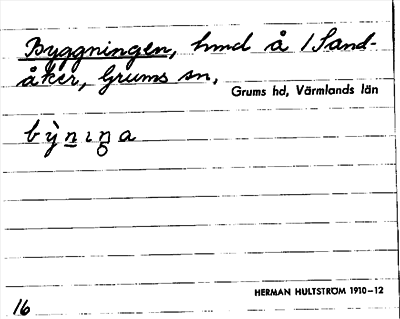 Byggningen, hmd å 1 Sand-
åker, Grums sn,
Grums hd, Värmlands län
bỳnıŋa
HERMAN HULTSTRÖM 1910–12
16